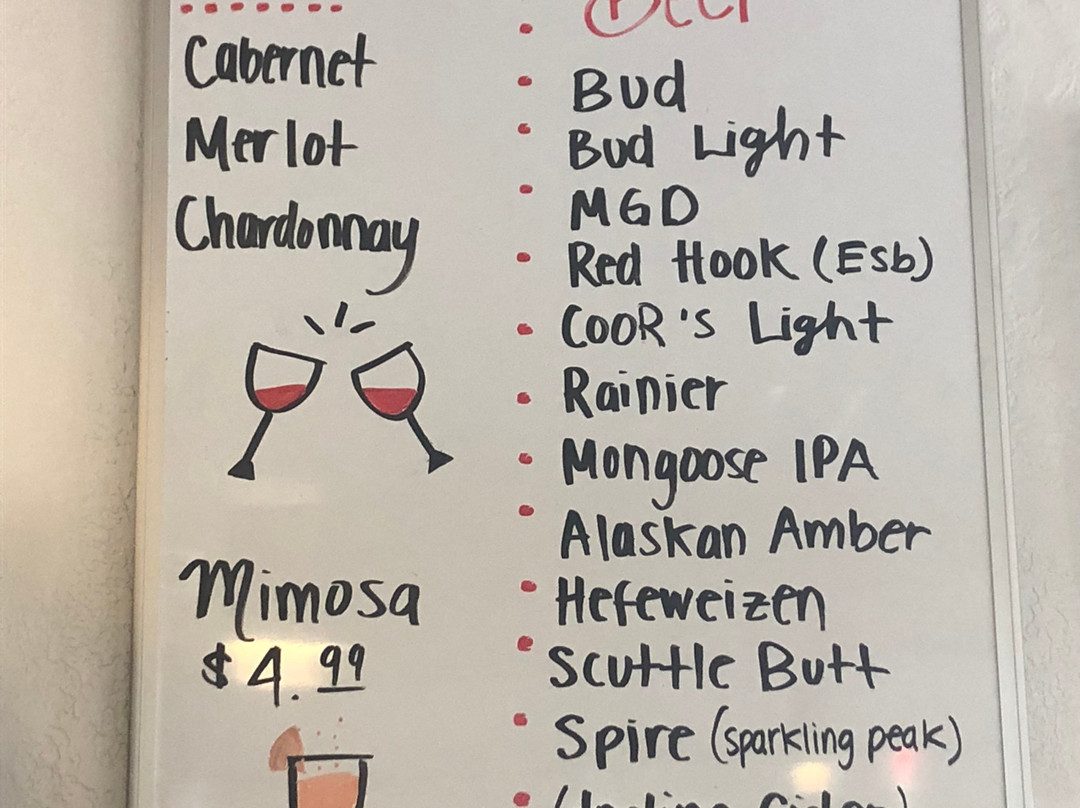 Cabernet
Merlot
Chardonnay
Mimosa
$4.99
Beer
Bud
Bud Light
MGD
Red Hook (Esb)
COOR'S Light
Rainier
Mongoose IPA
Alaskan Amber
Hefeweizen
Scuttle Butt
Spire (sparkling peak)